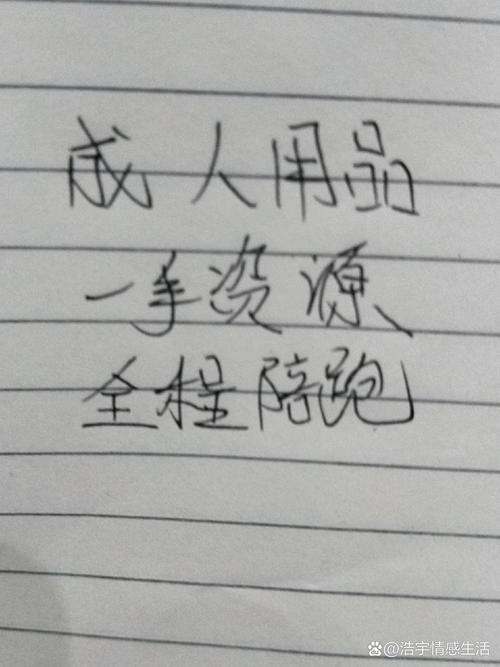 成人用品
一手资源
全程陪跑
浩宇情感生活